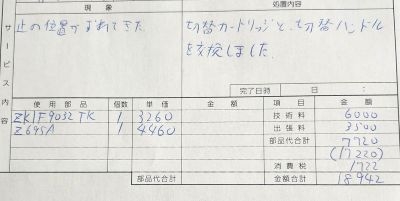 現象 処置内容
止の位置がずれてきた 切替カートリッジと、切替ハンドル
を交換しました
サービス内容
完了日時 日 :
使用部品 個数 単価 金額 項目 金額
ZK1F9032TK 1 3260 技術料 6000
Z695A 1 4460 出張料 3500
部品代合計 7720
(17220)
消費税 1722
部品代合計 金額合計 18942